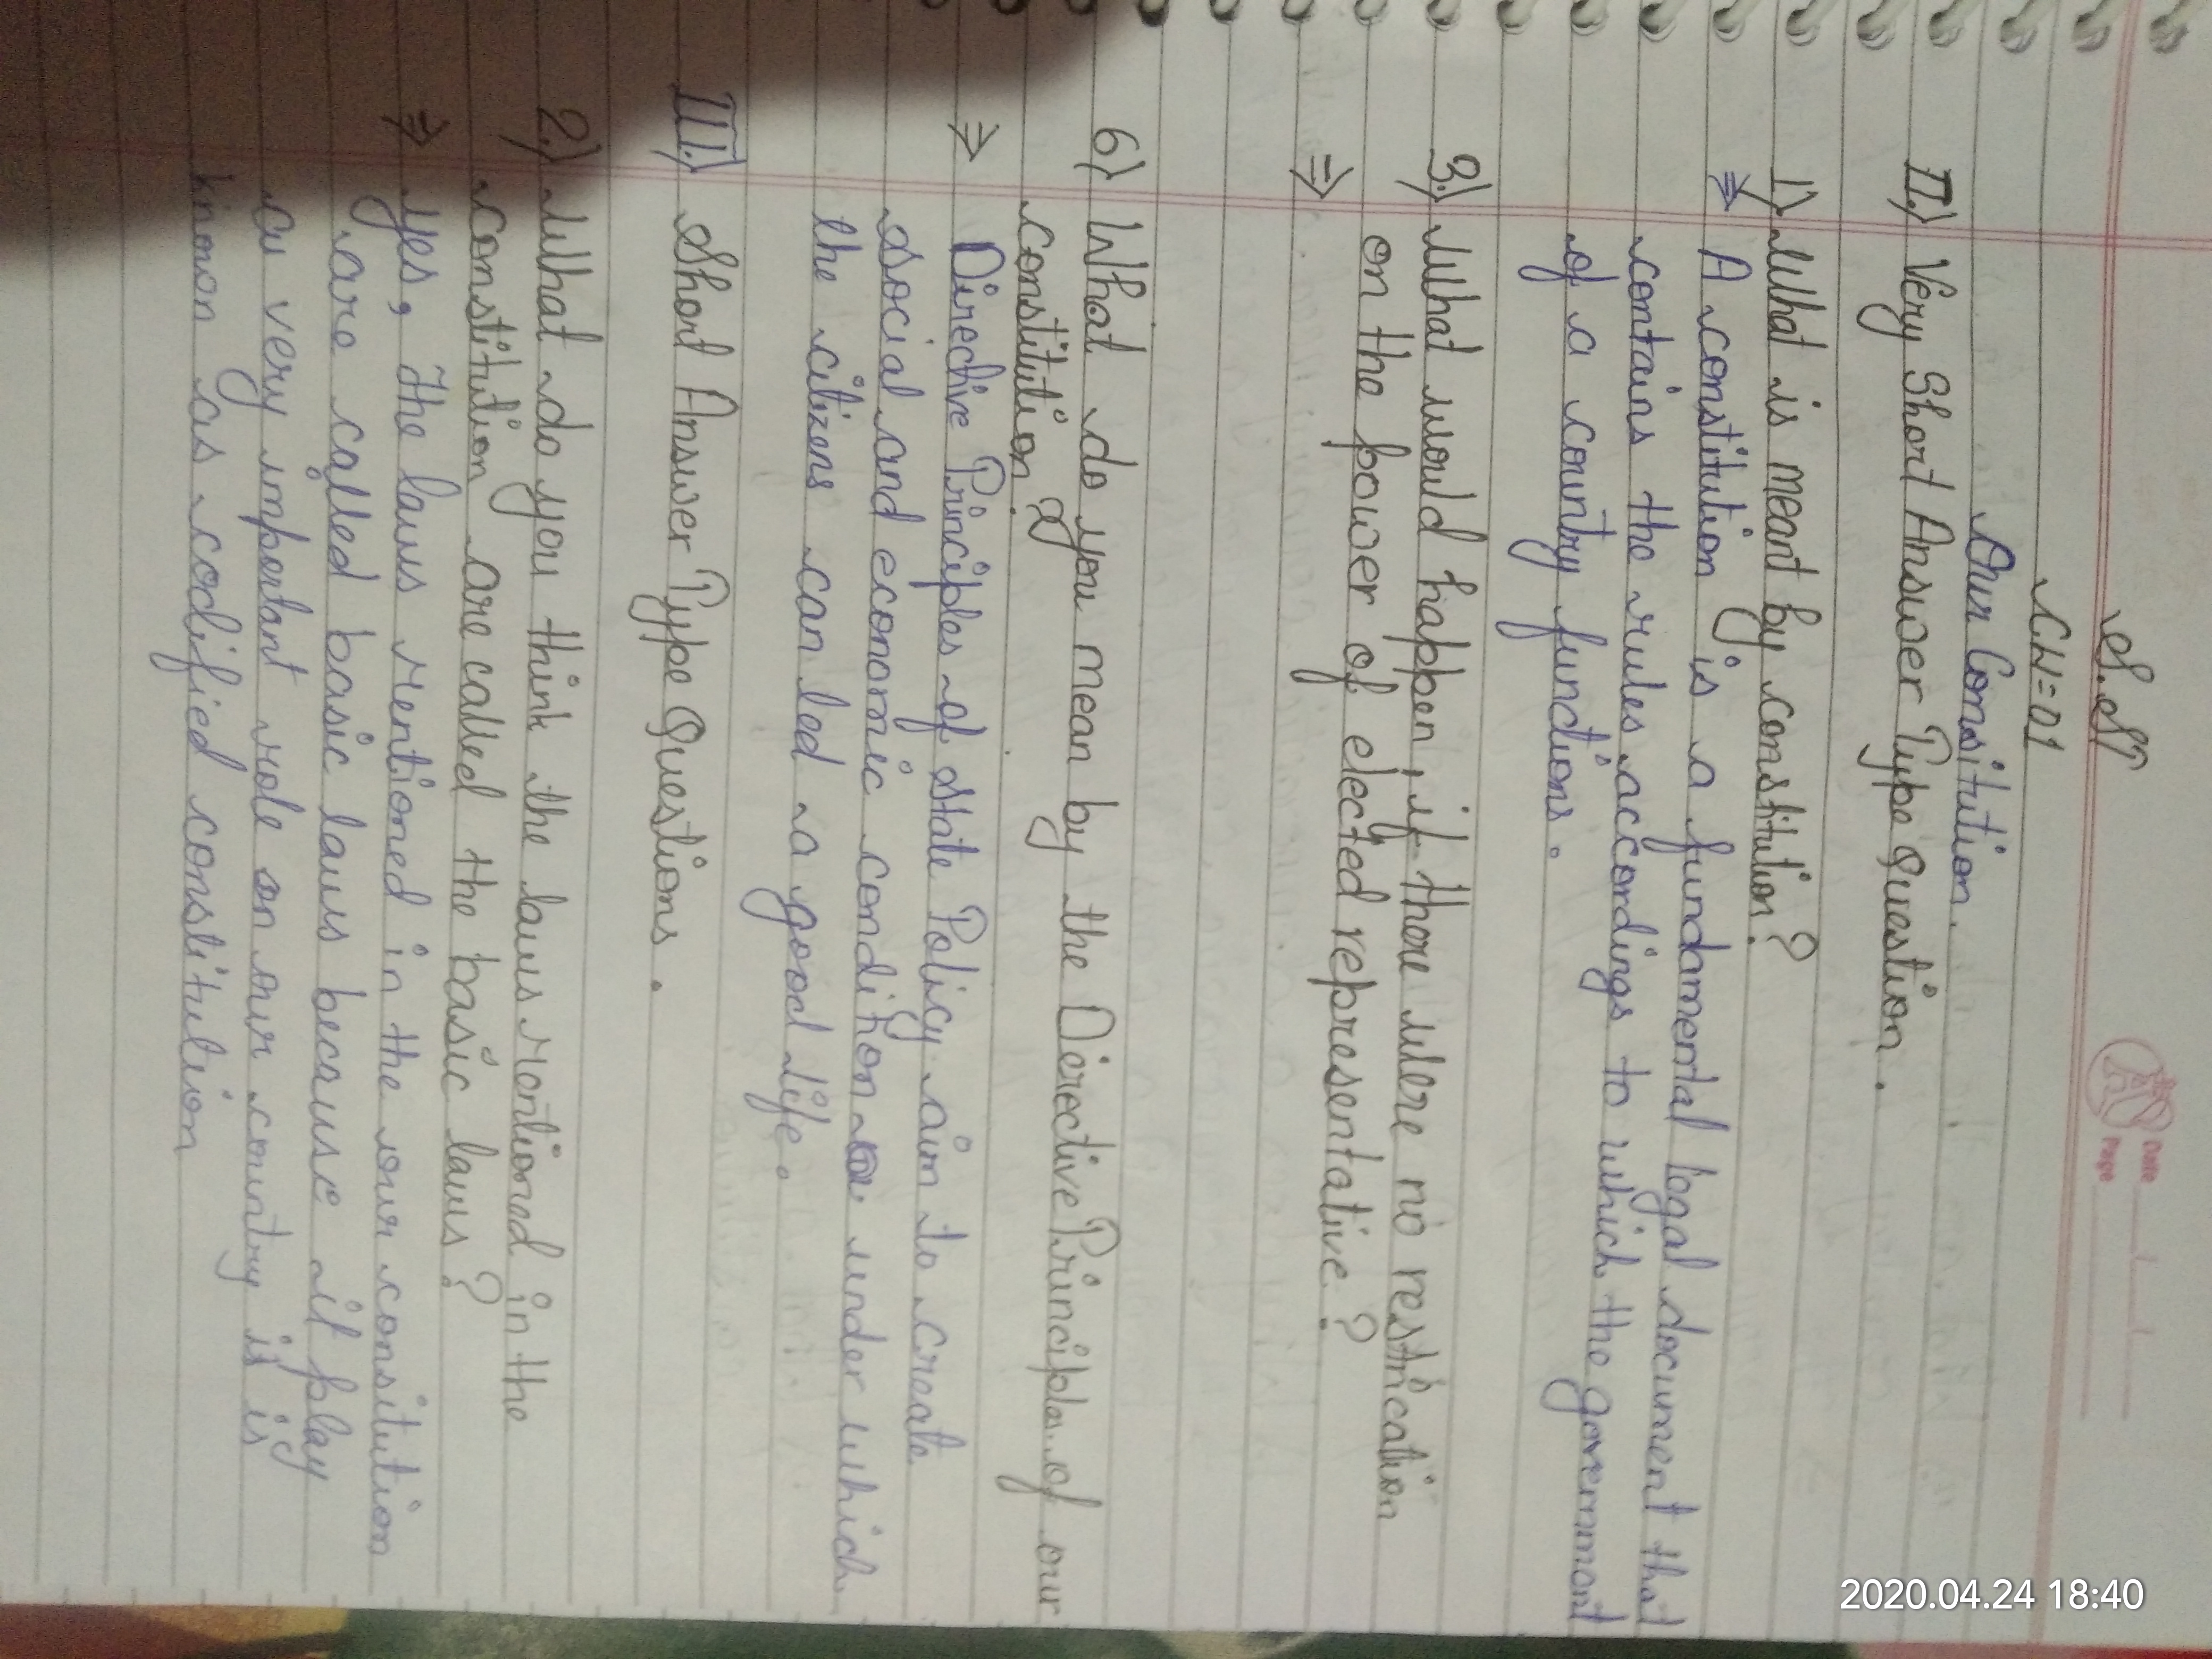 S.ST
Date
Page
CH=01
Our Consitution.
II.) Very Short Answer Type Question.
1) What is meant by constitution?
⇒ A constitution is a fundamental legal document that
contains the rules accordings to which the government
of a country functions.
3.) What would happen if there were no restrication
on the power of elected representative?
⇒
6) What do you mean by the Directive Principles of our
constitution?
⇒ Directive Principles of state Policy aim to create
social and economic condition under which
the citizens can led a good life.
III.) Short Answer Type Questions.
2.) What do you think the laws mentioned in the
constitution are called the basic laws?
⇒ Yes, the laws mentioned in the our consitution
are called basic laws because it play
a very important role on our country is is
known as codified constitution
2020.04.24 18:40